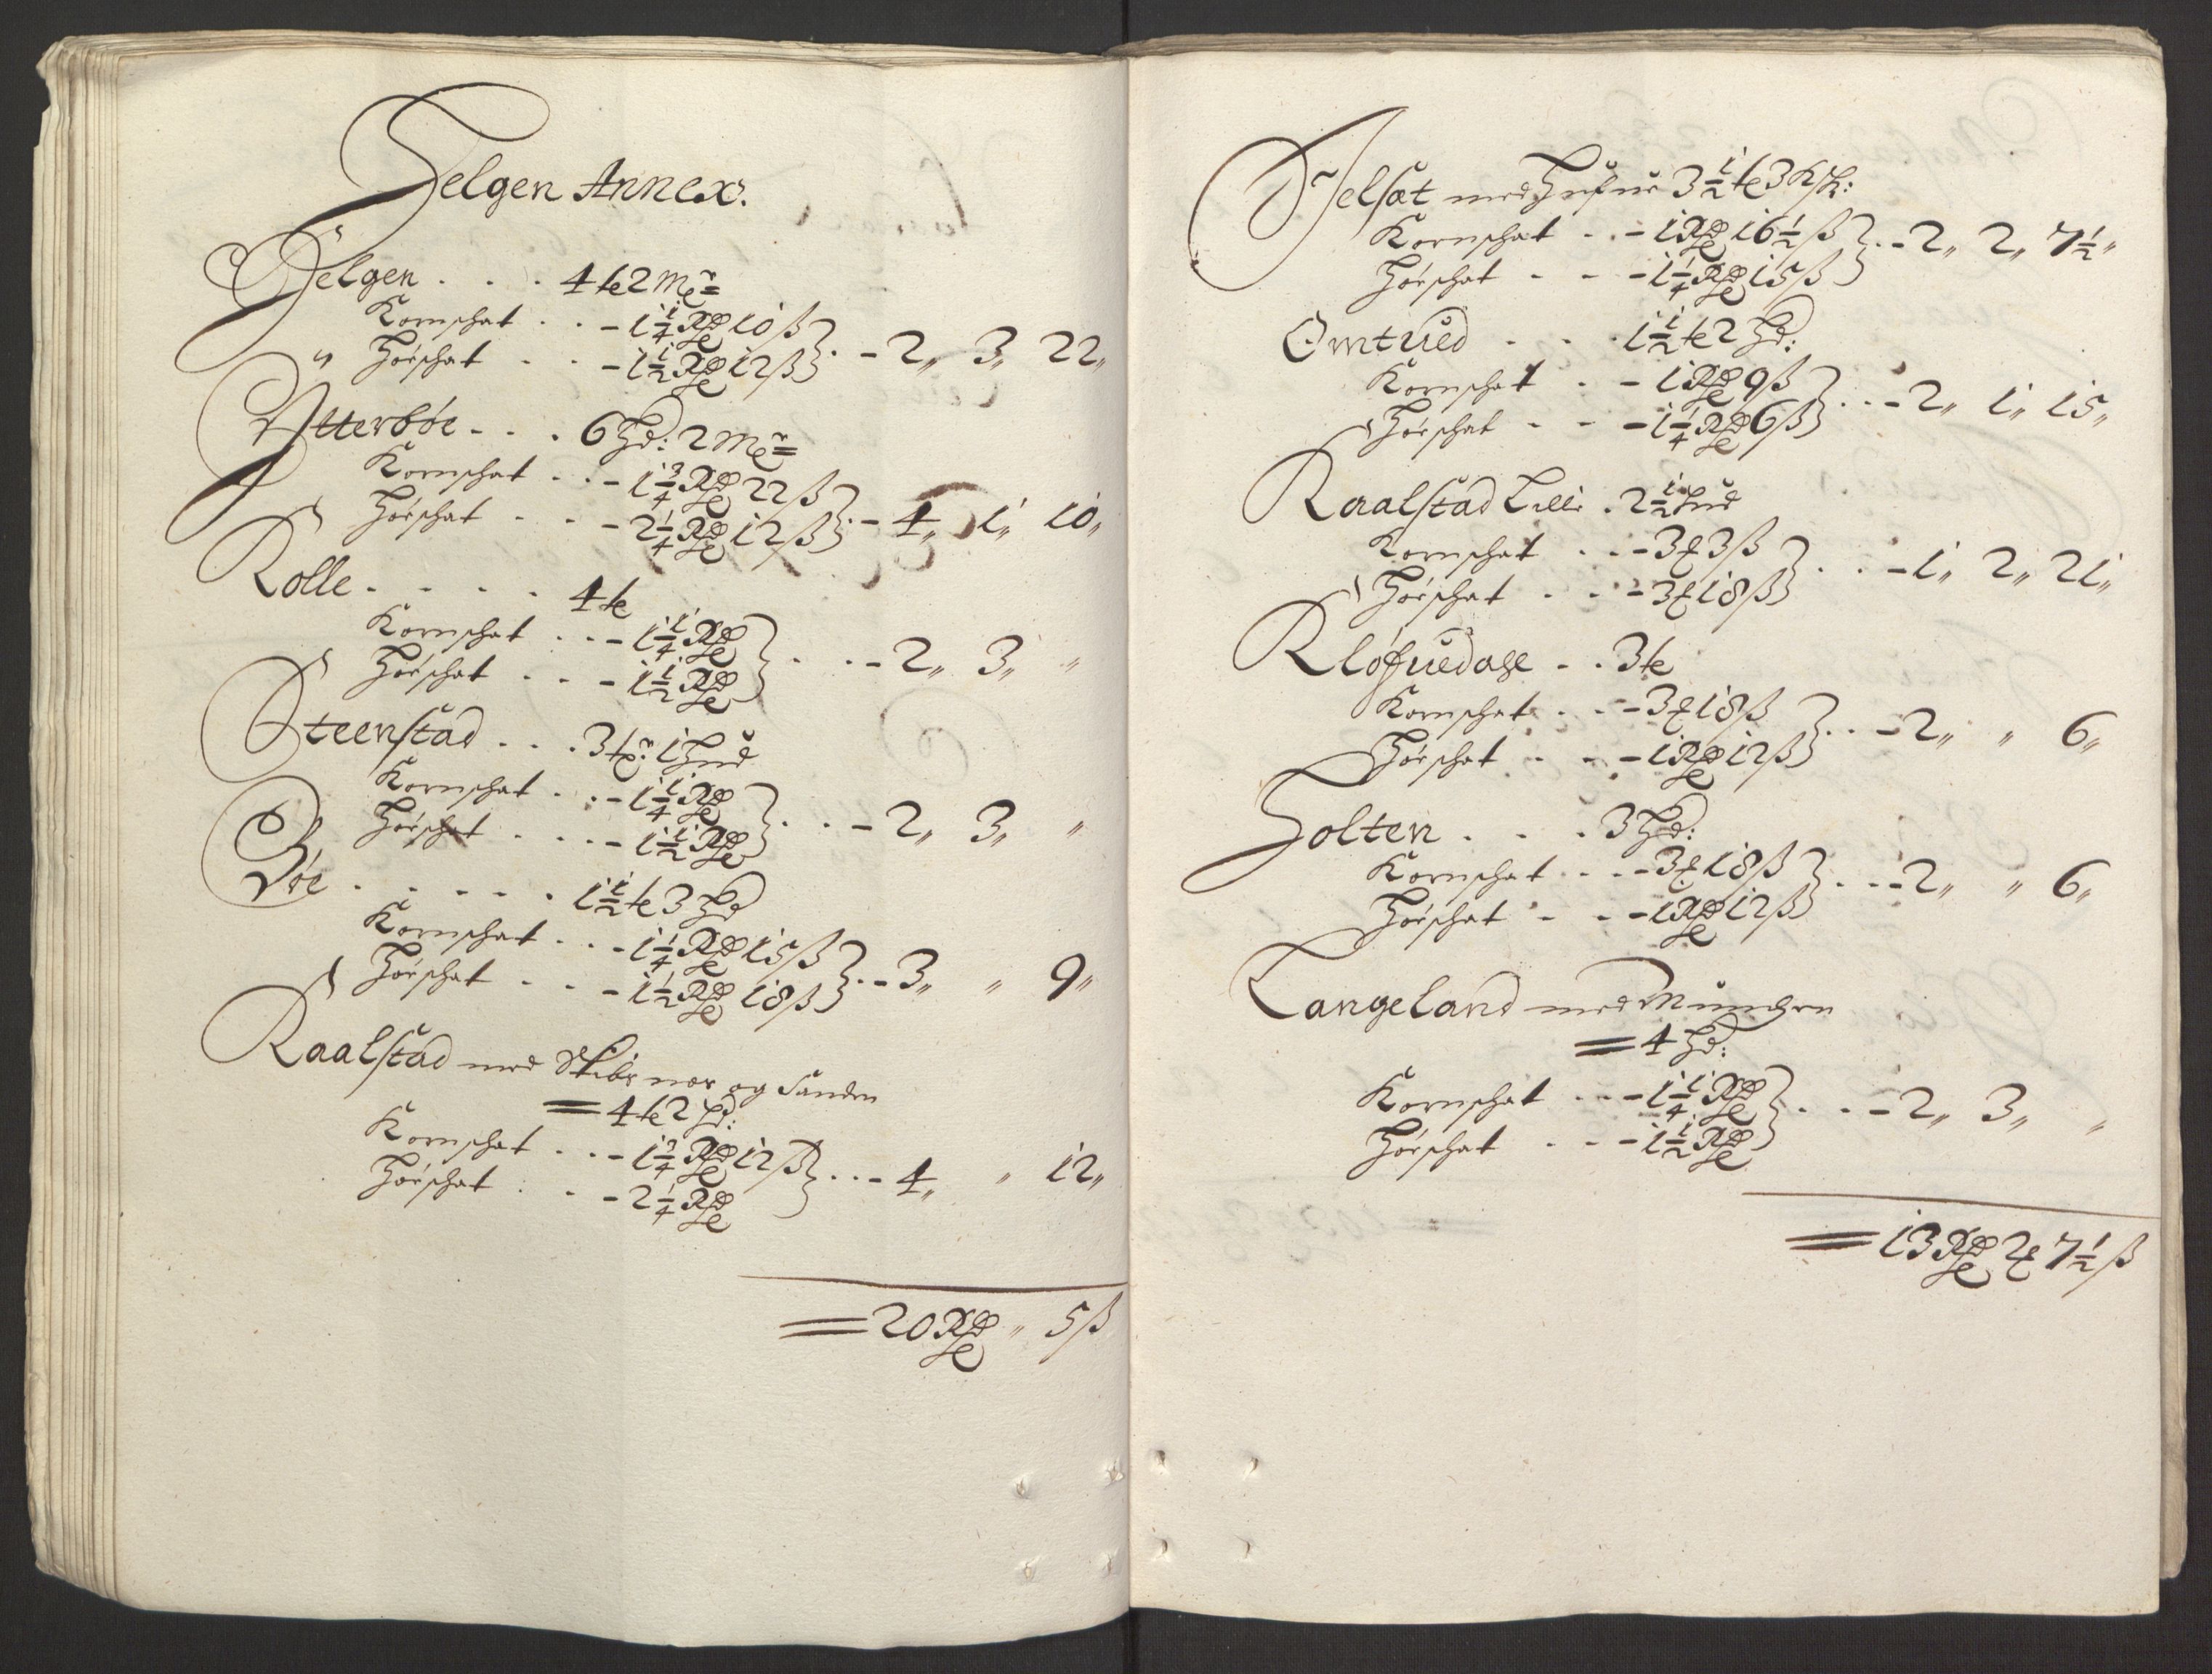 Helgen Annex.
Helgen . . . 4 te 2 Mr
Kornschat . . - 1 1/4 Rdr 10 ß
Hörschat . . - 1 1/2 Rdr 12 ß . - 2„ 3„ 22„
Ytterböe - . . 6 Hd: 2 Mr
Kornschat . . - 1 3/4 Rdr 22 ß
Hörschat . . - 2 1/4 Rdr 12 ß . - 4„ 1„ 10„
Rolle . . . . 4 te
Kornschat . . - 1 1/4 Rdr
Hörschat . . - 1 1/2 Rdr . . - 2„ 3„ „
Steenstad . . . 3 tr 1 Hud
Kornschat . . - 1 1/4 Rdr
Hörschat . . . - 1 1/2 Rdr . . - 2„ 3„ „
Böe . . . . . 1 1/2 te 3 Hd
Kornschat . . - 1 1/4 Rdr 15 ß
Hörschat . . - 1 1/2 Rdr 18 ß . . - 3„ „ 9„
Raalstad med Skibs nær og Sanden
= 4 te 2 Hd:
Kornschat . . - 1 3/4 Rdr 12 ß
Hörschat . . - 2 1/4 Rdr . . . - 4„ „ 12„
= 20 Rdr „ 5 ß
Jelsæt med 3 1/2 te 3 Ksk:
Kornschat . . - 1 Rdr 16 1/2 ß
Hörschat - - - 1 1/4 Rdr 15 ß . . - 2„ 2„ 7 1/2„
Omtued . . . 1 1/2 te 2 Hd:
Kornschat . - 1 Rdr 9 ß
Hörschat - - - 1 1/4 Rdr 6 ß . . . - 2„ 1„ 15„
Raalstad Lille . 2 1/2 Hud
Kornschat . . - 3 ₰ 3 ß
Hörschat . . - 3 ₰ 18 ß . . . - 1„ 2„ 21„
Klöfuedahl - . 3 te
Kornschat . . - 3 ₰ 18 ß
Hörschat . . - 1 Rdr 12 ß . . - 2„ „ 6„
Holten . . . 3 Hd:
Kornschat . . - 3 ₰ 18 ß
Hörschat - . - 1 Rdr 12 ß . . . - 2„ „ 6„
Langeland med Munden
= 4 Hd:
Kornschat . . - 1 1/4 Rdr
Hörschat . . - 1 1/2 Rdr . . . - 2„ 3„ „
= 13 Rdr 2 ₰ 7 1/2 ß